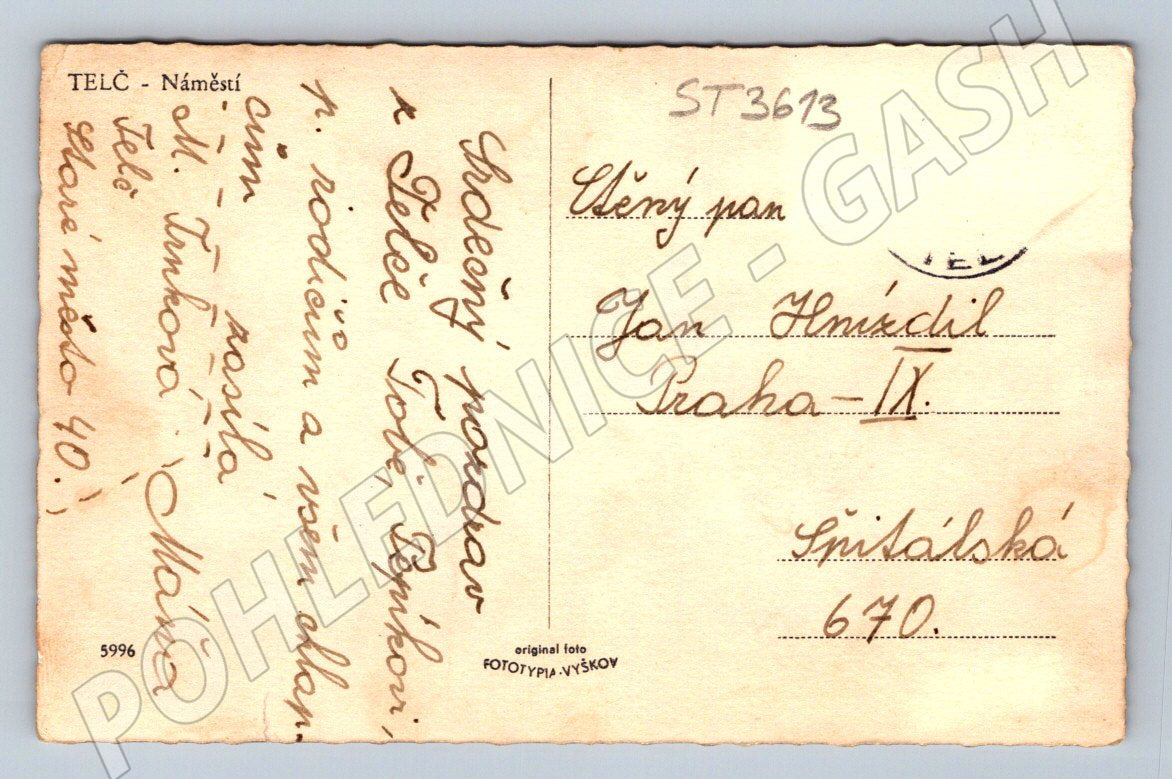 TELČ - Náměstí
ST3613
Srdečný pozdrav
z Telče Tobě, Pepíkovi,
p. rodičům a všem chlap.
cům
zasílá
Máňa
M. Trnková
Telč
Staré město 40.
Ctěný pan
Jan Hnízdil
Praha - IX.
Spitálská
670.
TEL
5996
original foto
FOTOTYPIA-VYŠKOV
POHLEDNICE - GASH